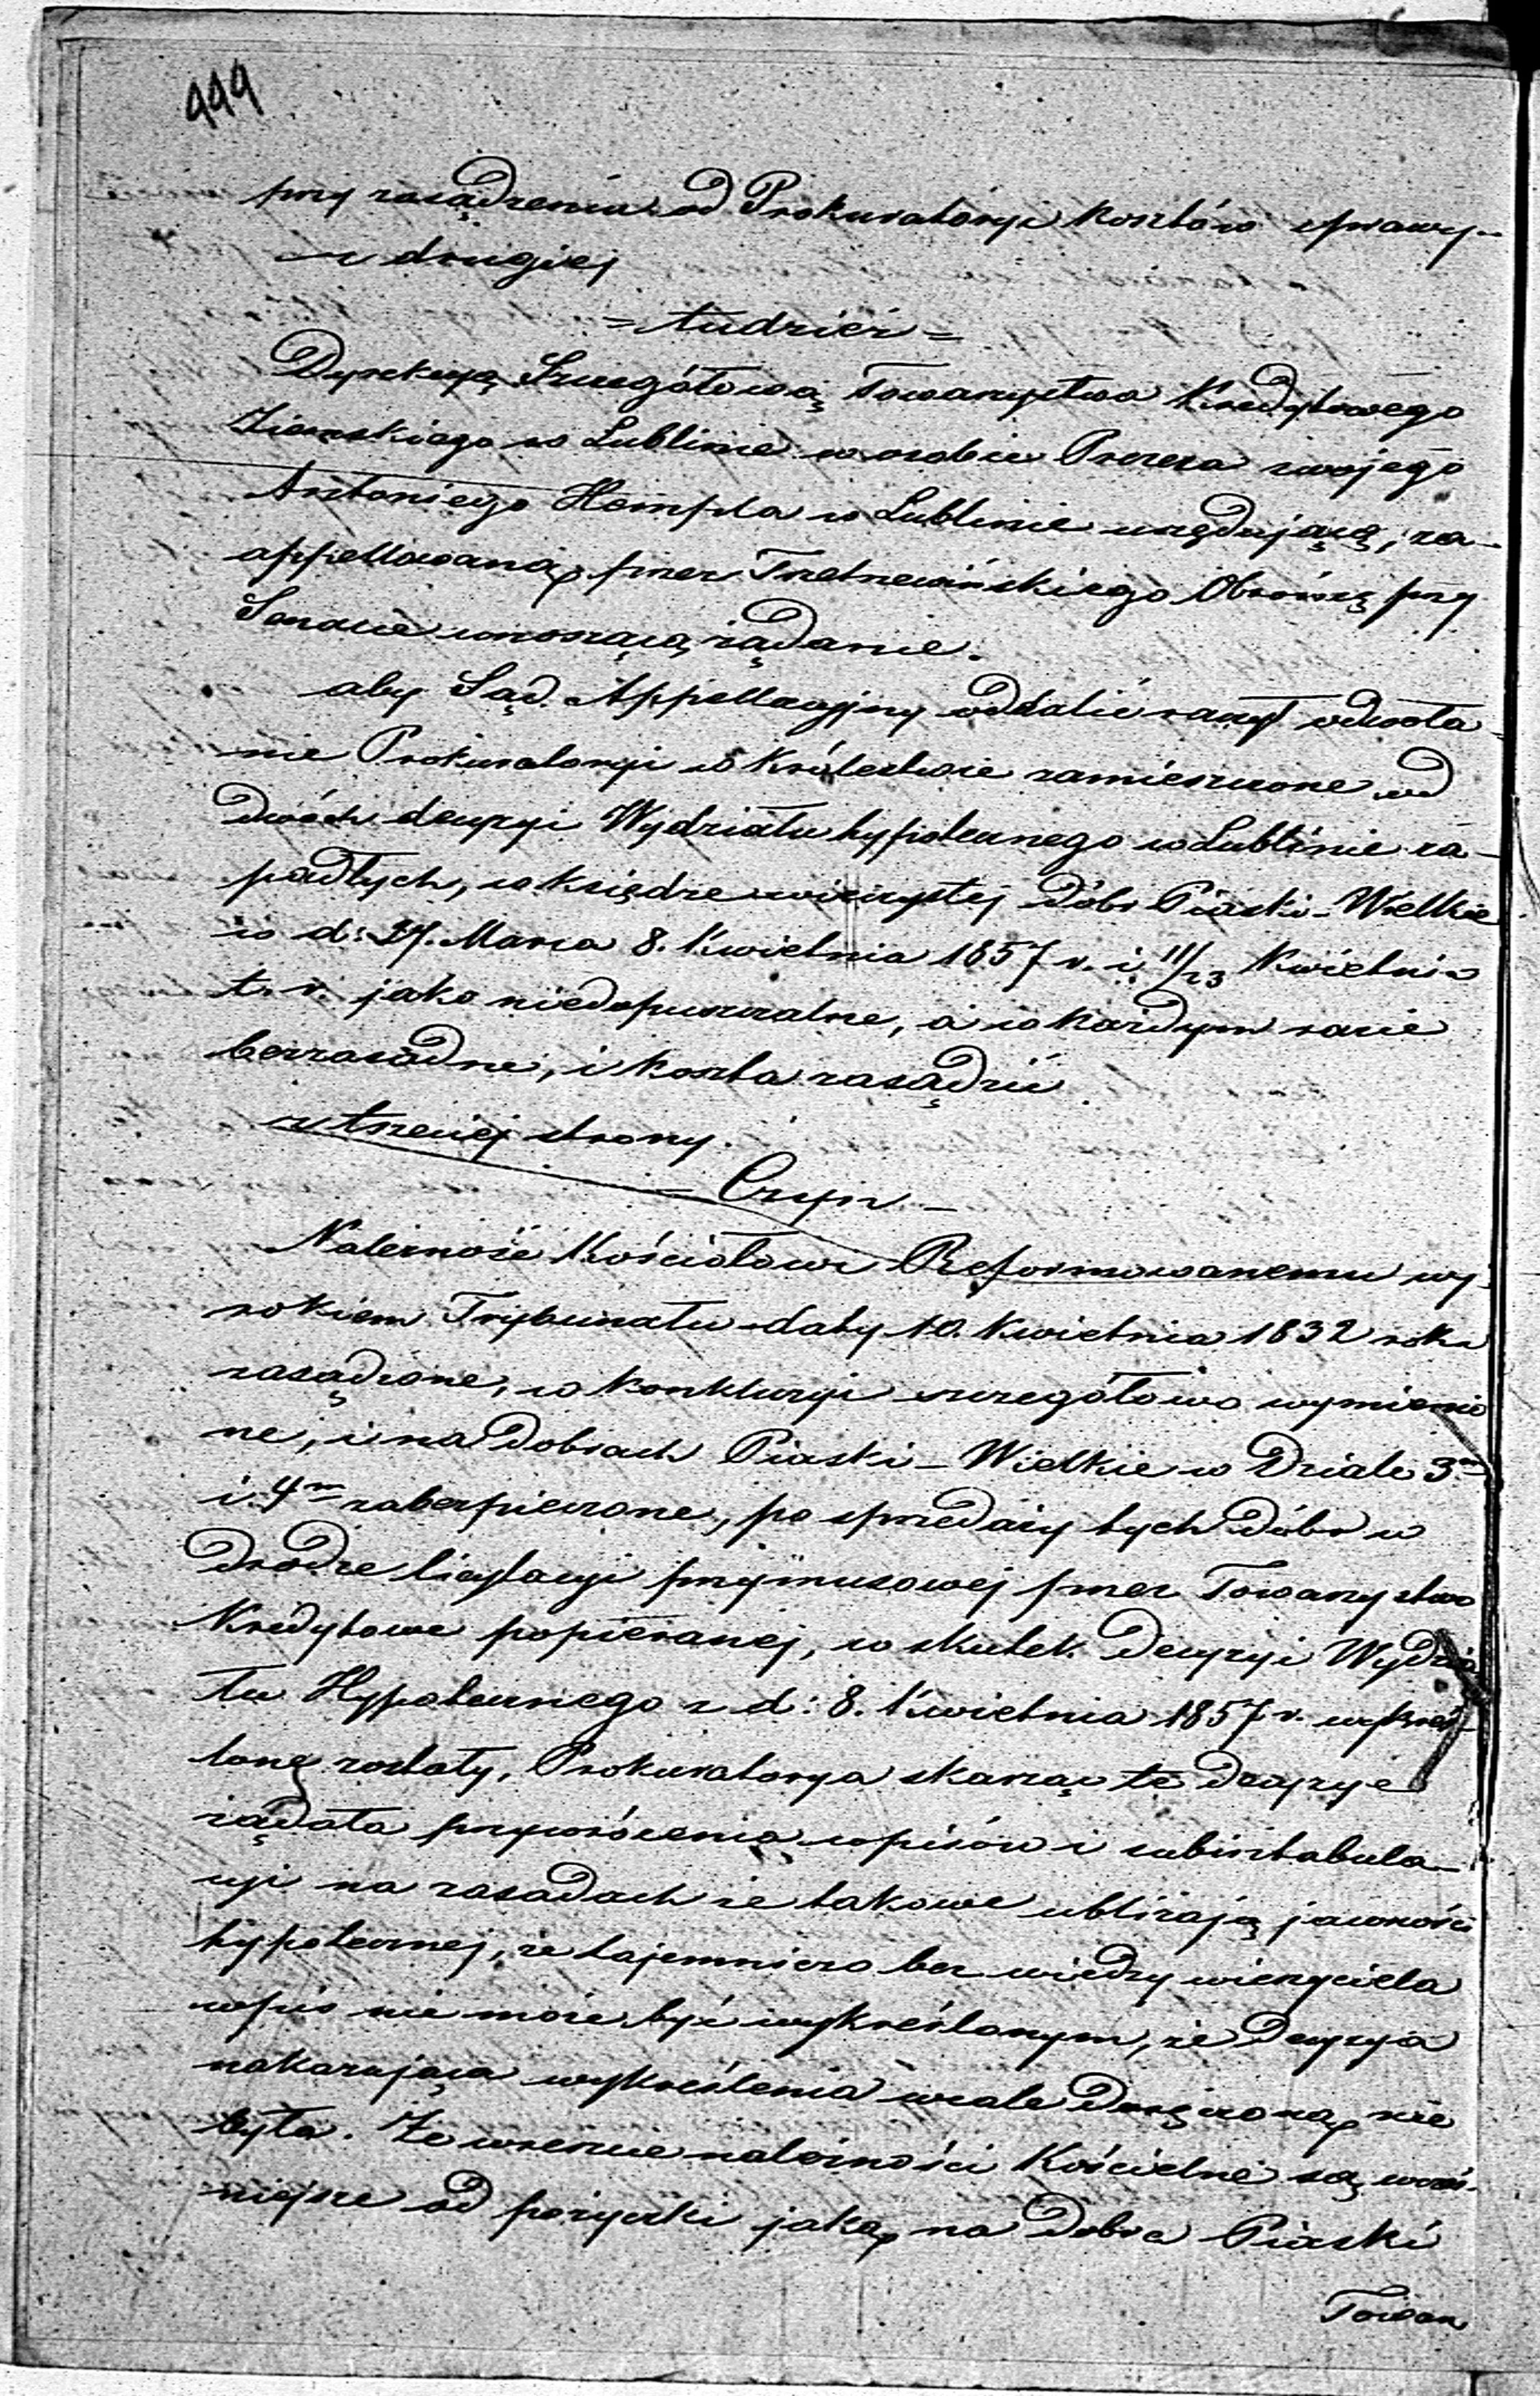 999
przy zasądzeniu od Prokuratoryi kosztów sprawy–
z drugiej
= tudzież =
Dyrekcyą Szczegółową Towarzystwa Kredytowego
Ziemskiego w Lublinie w osobie Prezesa swojego
Antoniego Hempla w Lublinie urzędującą, za–
appellowaną przez Trzetrzewińskiego Obrońcę przy
Senacie wnoszącą żądanie.
aby Sąd Appellacyjny oddalić raczył odwoła–
nie Prokuratoryi w Królestwie zamieszczone od
dwóch decyzyi Wydziału hypotecznego w Lublinie za–
padłych, w księdze wieczystej dóbr Piaski–Wielkie
w d: 27. Marca 8. Kwietnia 1857 r. i 11/23 Kwietnia
t. r. jako niedopuszczalne, a w każdym razie
bezzasadne, i koszta zasądzić
z trzeciej strony.
– Czyn –
Należność Kościołowi Reformowanemu wy–
rokiem Trybunału daty 10. Kwietnia 1832 roku
zasądzone, w konkluzyi szczegółowo wymienio
ne, i na dobrach Piaski–Wielkie w Dziale 3m
i 4m zabezpieczone, po sprzedaży tych dóbr w
drodze licytacyi przymusowej przez Towarzystwo
Kredytowe popieranej, w skutek decyzyi Wydzia
łu Hypotecznego z d: 8. Kwietnia 1857 r. wykreś–
lone zostały, Prokuratorya skarżąc tę decyzyę
żądała przywrócenia wpisów i subintabula–
cyi na zasadach że takowe ubliżają jawności
hypotecznej, że tajemniczo bez wiedzy wierzyciela
wpis nie może być wykreślonym, że decyzya
nakazująca wykreślenia wcale doręczoną nie
była. Że wreszcie należności Kościelne są wcześ–
niejsze od pożyczki jaką na dobra Piaski
Towarz